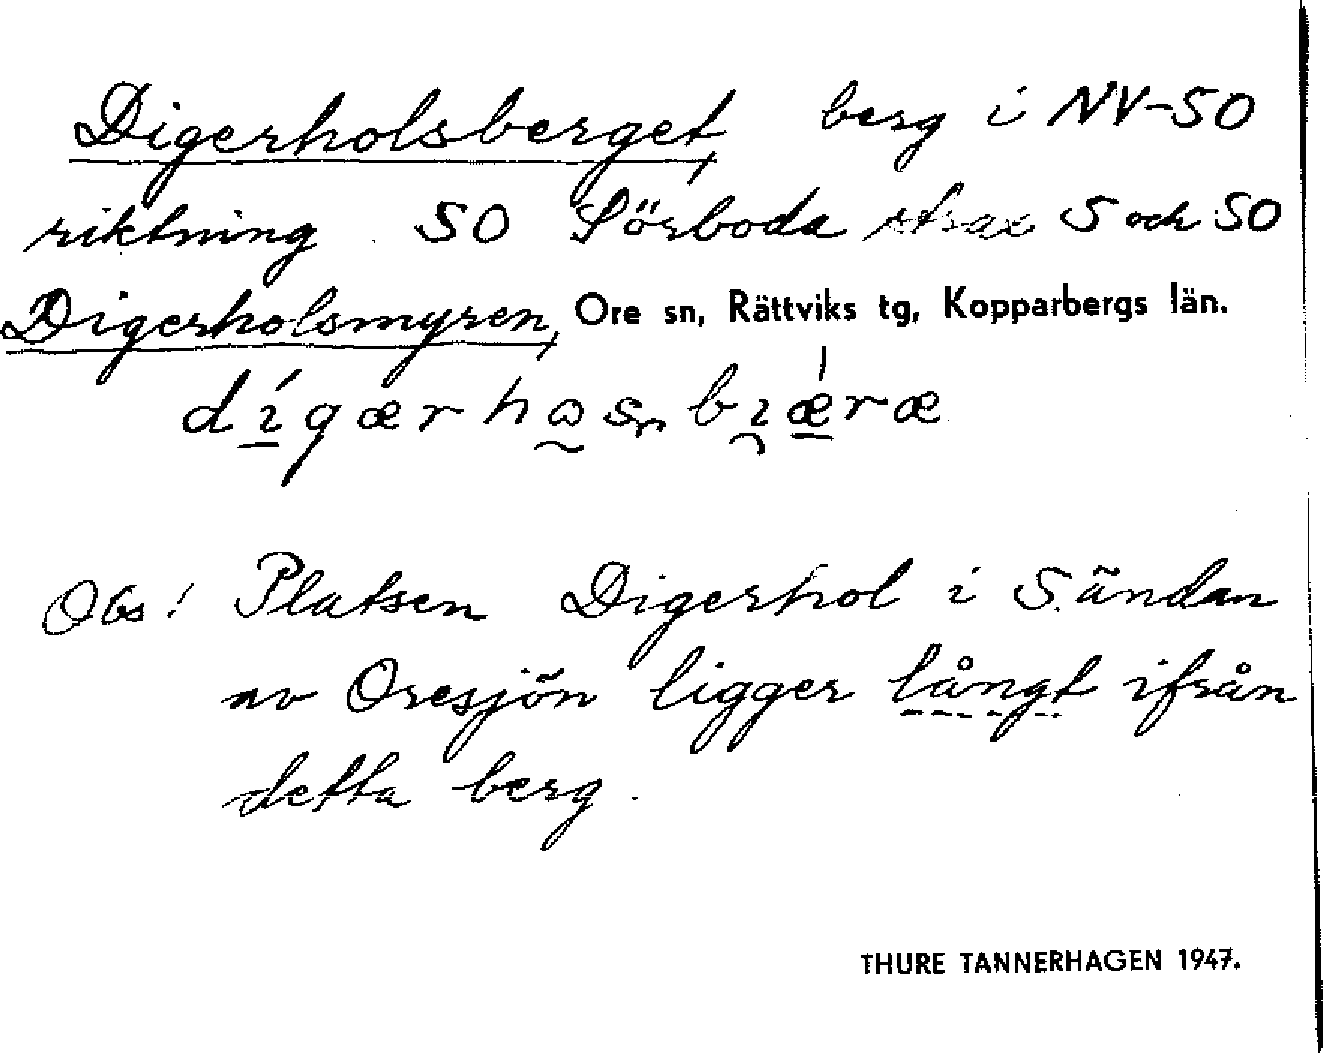 Digerholsberget, berg i NV-SO
riktning SO Sörboda strax S och SO
Digerholsmyren, Ore sn, Rättviks tg, Kopparbergs län.
Obs! Platsen Digerhol i S. ändan
av Oresjön ligger långt ifrån
detta berg.
THURE TANNERHAGEN 1947.